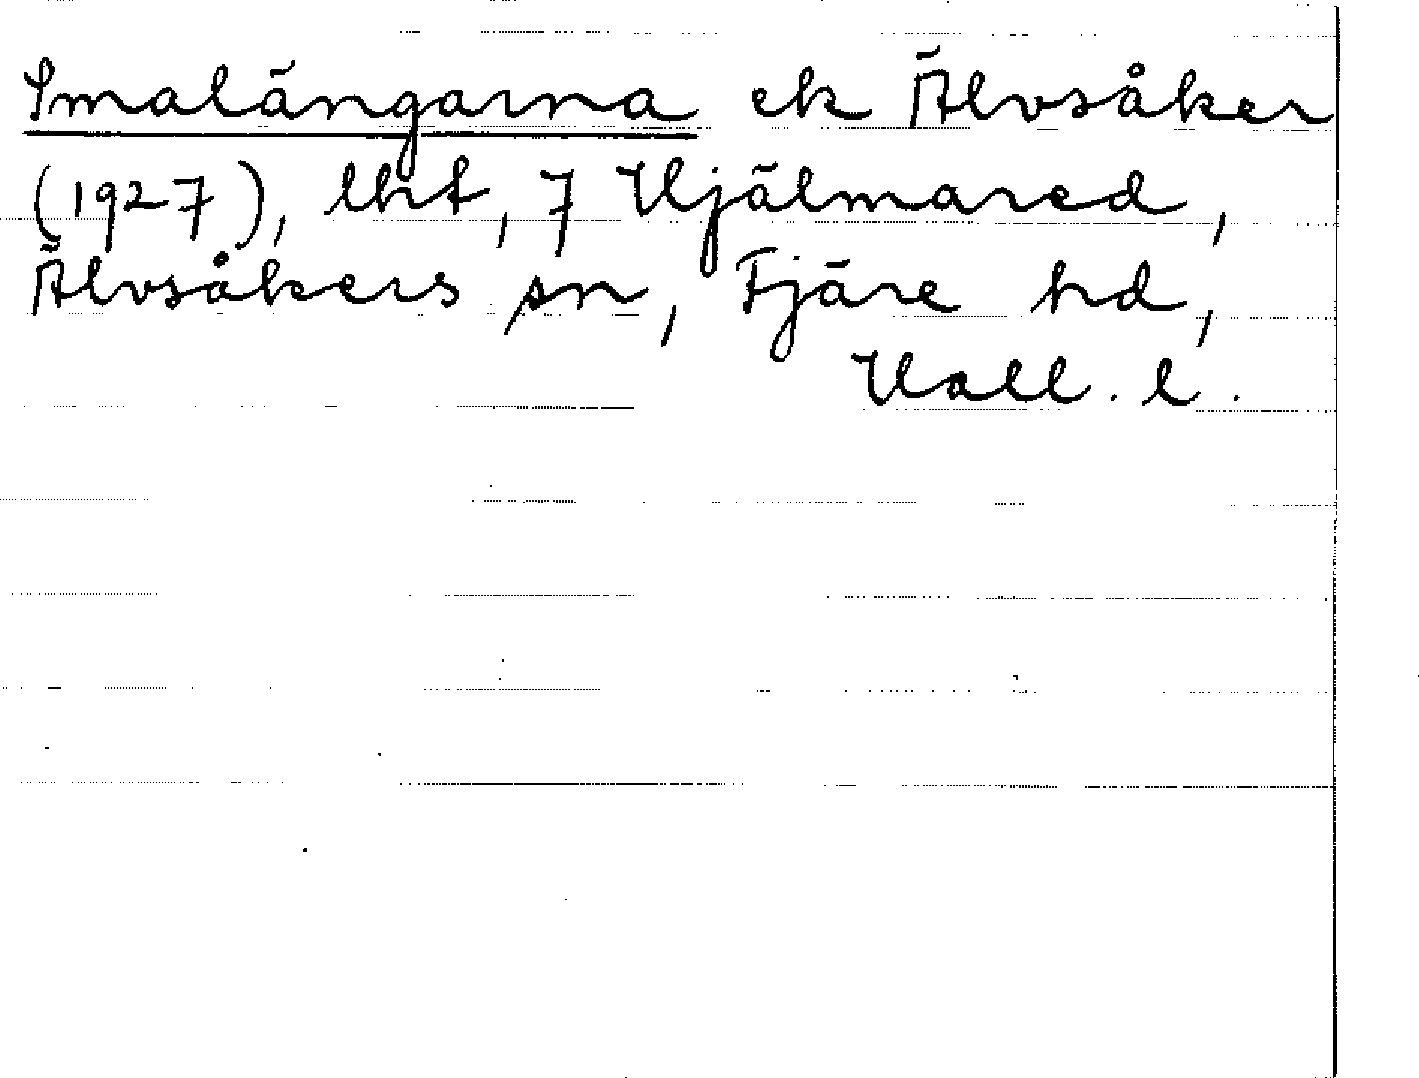 Smalängarna ek Älvsåker
(1927), lht, 7 Hjälmared,
Älvsåkers sn, Fjäre hd,
Hall. l.